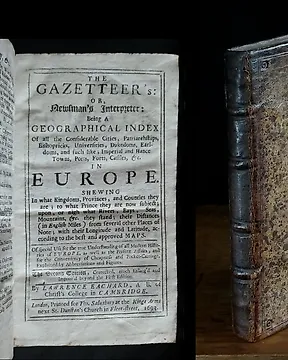 THE
GAZETTEER's:
OR,
Newsman's Interpreter:
Being A
GEOGRAPHICAL INDEX
Of all the Considerable Cities, Patriarchships,
Bishopricks, Universities, Dukedoms, Earl-
doms, and such like; Imperial and Hance
Towns, Ports, Forts, Castles, &c.
IN
EUROPE.
SHEWING
In what Kingdoms, Provinces, and Counties they
are; to what Prince they are now subject;
upon, or nigh what Rivers, Bays, Seas,
Mountains, &c. they stand; their Distances
(in English Miles) from several other Places of
Note; with their Longitude and Latitude, ac-
cording to the best and approved MAPS.
Of special Use for the true Understanding of all Modern Histo-
ries of EUROPE, as well as the Present Affairs; and
for the Conveniency of
The Second Edition, Corrected, much Enlarg'd and
Improved beyond the First Edition.
By LAWRENCE EACHARD, A. B. of
Christ's College in CAMBRIDGE.
London, Printed for Tho. Salusbury at the Kings Arms
next St. Dunstan's Church in Fleet-street,